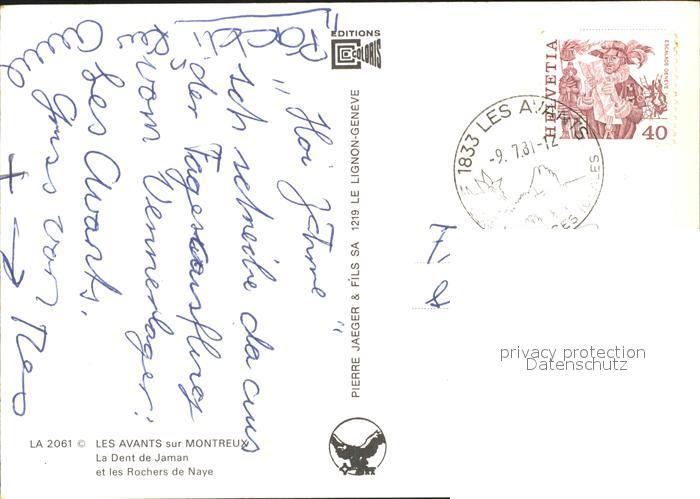 " Hoi
Ich schreibe da aus
der Tagesausflug
vom Vennerlager!
Les Avants.
Gruss von
EDITIONS
COLORIS
PIERRE JAEGER & FILS SA 1219 LE LIGNON-GENEVE
LA 2061 © LES AVANTS sur MONTREUX
La Dent de Jaman
et les Rochers de Naye
HELVETIA
ESCALADE GENEVE
40
1833 LES AVANTS
-9. 7.81-12
privacy protection
Datenschutz